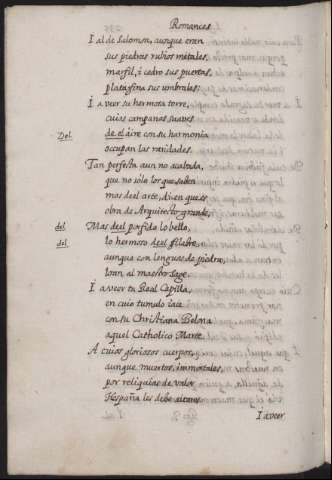 Romances
I al de Salomon, aunque eran
sus piedras rubios metales,
marfil, i cedro sus puertas,
plata fina sus umbrales.
I a ver su hermosa torre,
cuias campanas suaves
Del de el aire con su harmonia
occupan las vanidades.
Tan perfecta aun no acabada,
que no solo los que saben
mas del arte, dicen que es
obra de Arquitecto grande,
del Mas del porfido lo bello,
del lo hermoso del filabre
aunque con lenguas de piedra,
loan al maestro
I a veer tu Real Capilla,
en cuio tumulo iace
con su Christiana Belona
aquel Catholico Marte.
A cuios gloriosos cuerpos,
aunque muertos, immortales,
por reliquias de valor
Hespaña les debe altares.
I a veer